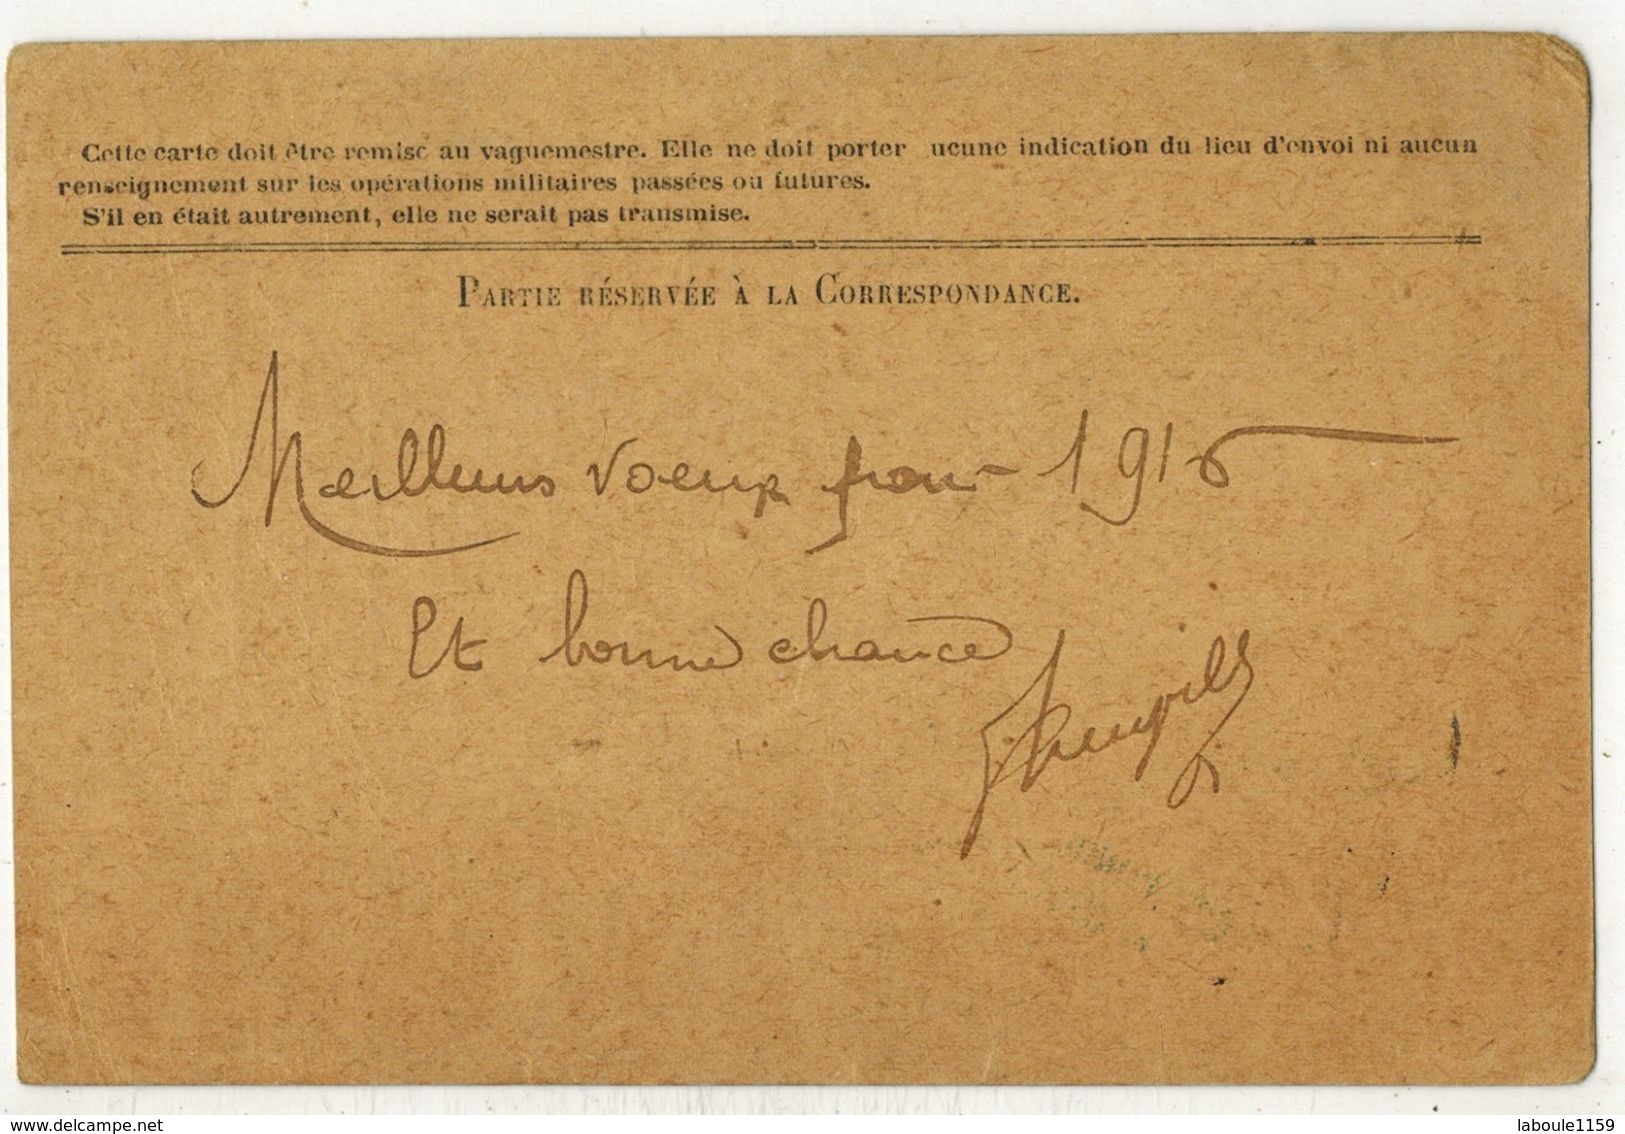 Cette carte doit être remise au vaguemestre. Elle ne doit porter ucune indication du lieu d'envoi ni aucun
renseignement sur les opérations militaires passées ou futures.
S'il en était autrement, elle ne serait pas transmise.
PARTIE RÉSERVÉE À LA CORRESPONDANCE.
Meilleurs voeux pour 1916
Et bonne chance
delcampe.net
laboule1159